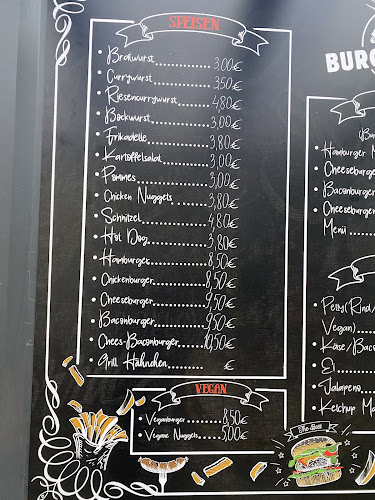 SPEISEN
Bratwurst 3,00€
Currywurst 3,50€
Riesencurrywurst 4,80€
Bockwurst 3,00€
Frikadelle 3,80€
Kartoffelsalat 3,00€
Pommes 3,00€
Chicken Nuggets 3,80€
Schnitzel 4,80€
Hot Dog 3,80€
Hamburger 8,50€
Chickenburger 8,50€
Cheeseburger 9,50€
Baconburger 9,50€
Chees-Baconburger 10,50€
Grill Hähnchen €
VEGAN
Veganburger 8,50€
Vegane Nuggets 5,00€
BURG
(Bur
Hamburger M
Cheeseburger
Baconburger
Cheeseburger
Menü
Petty(Rind/
Vegan)
Käse/Baco
Ei
Jalapeno
Ketchup Ma
The Best